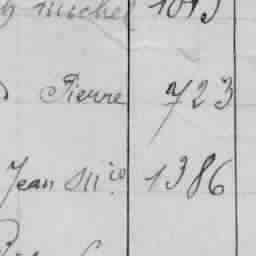 Michel 1013
Pierre 723
Jean Mie 1386